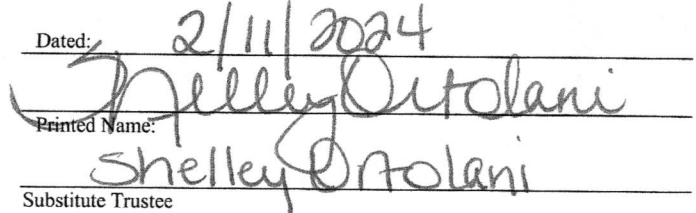 Dated: 2/11/2024
Shelley Ortolani
Printed Name:
Shelley Ortolani
Substitute Trustee